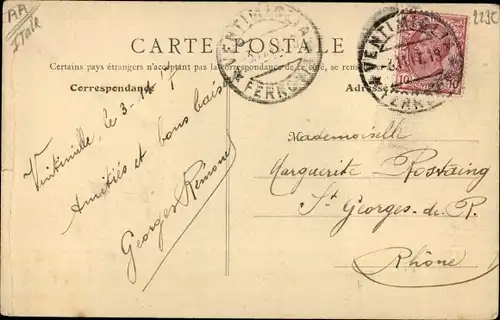 AA
Itale
223C
CARTE POSTALE
Certains pays étrangers n'acceptant pas la Correspondance de ce côté, se ren
Correspondance
Adresse
VENTIMIGLIA
FERROVIA
VENTIMIGLIA
10 10
le 3-
Amitiés et bons baisers
Georges Rémone
Mademoiselle
Marguerite Rostaing
St Georges-de-R.
Rhône